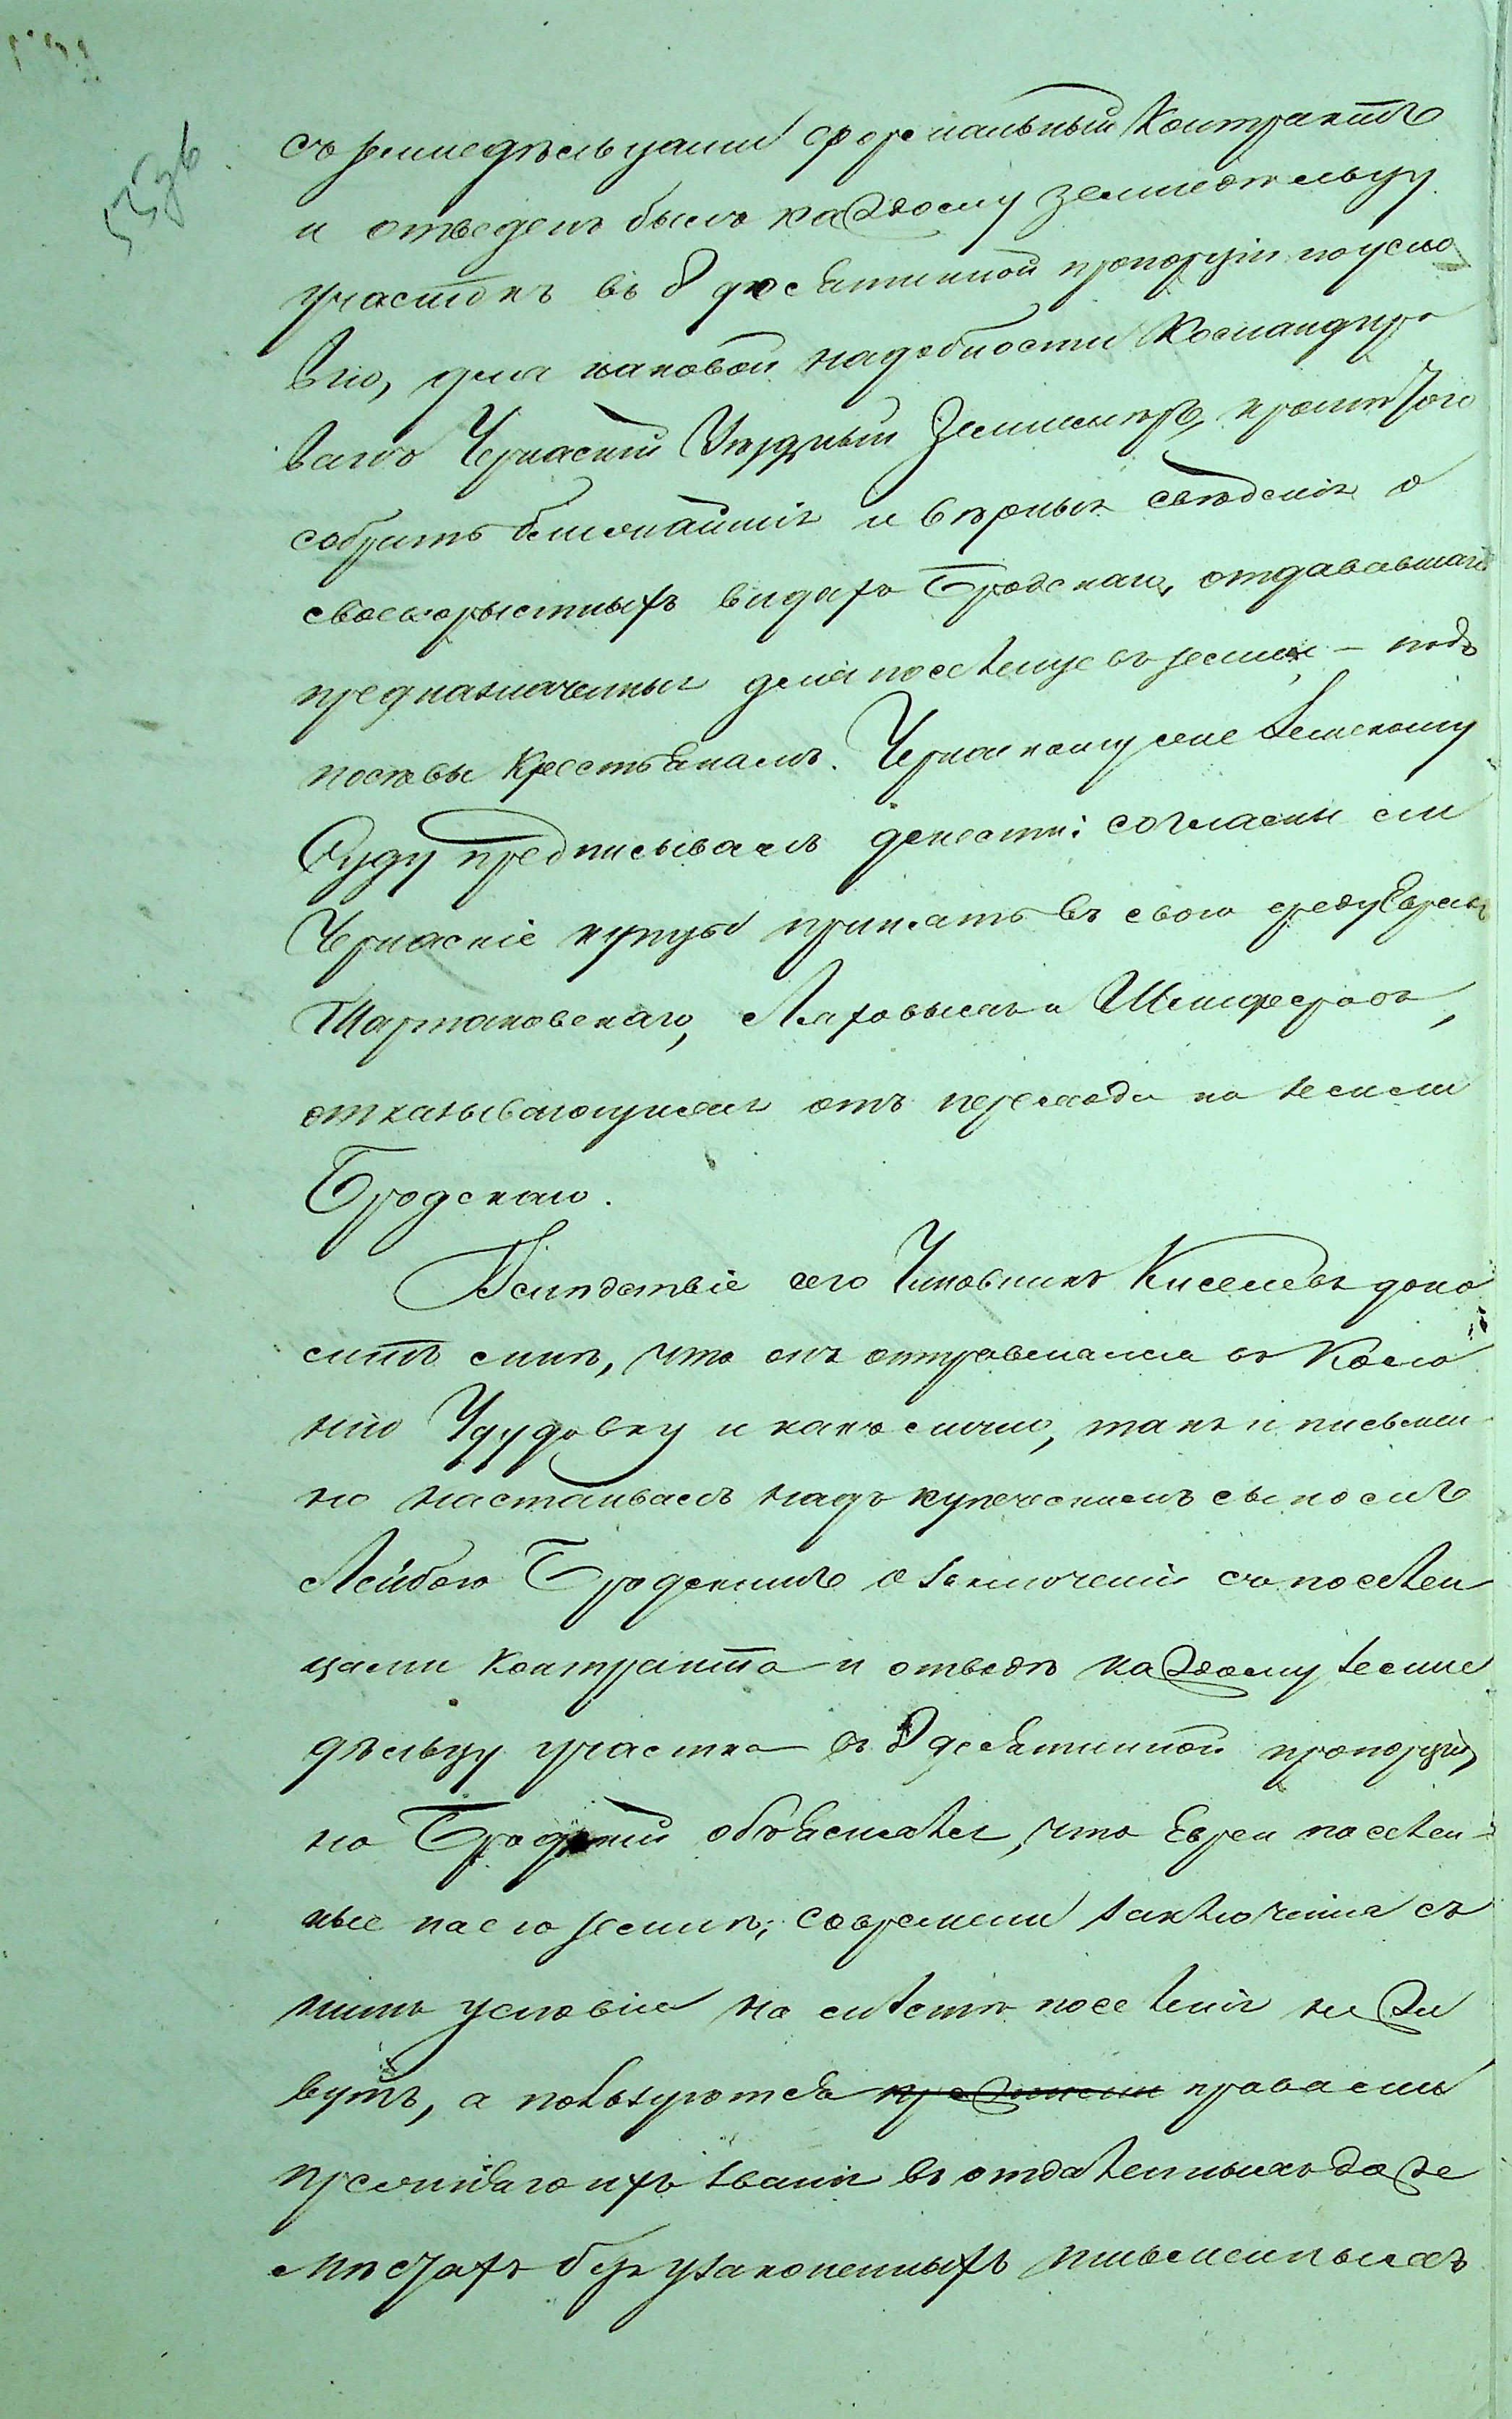 съ земледѣльцами формальный Контрактъ
и отведенъ былъ каждому земледѣльцу
участокъ въ 8 десятинной пропорціи по усло
вію, для каковой надобности Командиро
валъ Черкаскій Уѣздный Землемѣръ,
собрать ближайшія и вѣрныя свѣденія о
своекорыстныхъ видахъ Бродскаго, отдававшаго
предназначенныя для поселенцевъ земли, – подъ
посѣвы Крестьянамъ. Черкаскому же Земскому
Суду предписывалъ донести: согласны ли
Черкаскіе купцы принять въ свою среду Евреевъ
отказывающихся отъ перехода на земли
Бродскаго.
Вслѣдствіе сего Чиновникъ Киселевъ доно
ситъ мнѣ, что онъ отправлялся въ Коло
нію Чудовку и какъ лично, такъ и письмен
но настаивалъ надъ купеческимъ сыномъ
Лейбою Бродскимъ о заключеніи съ поселен
цами контракта и отводѣ каждому земле
дѣльцу участка въ 8 десятинной пропорціи,
но Бродскій объясняетъ, что Евреи поселен-
ные на его землѣ, со времени заключенія съ
ними условія на мѣстѣ поселенія не жи
вутъ, а пользуются правами
прежняго ихъ званія въ отдаленныхъ даже
мѣстахъ безъ узаконенныхъ письменныхъ